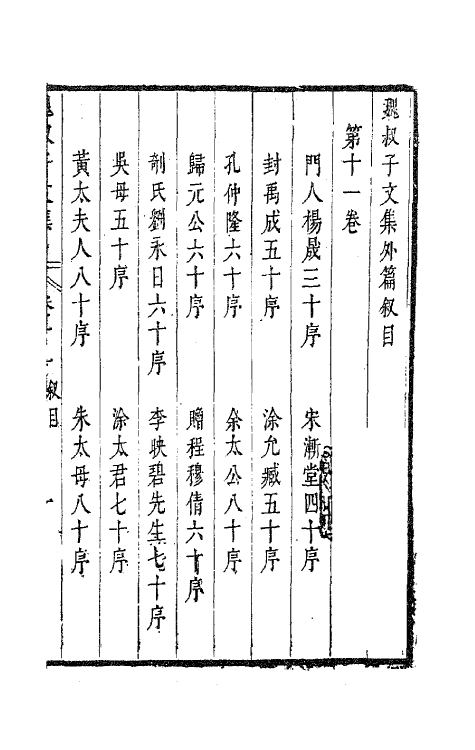 魏叔子文集外篇叙目
第十一卷
門人楊晟三十序
宋漸堂四十序
封禹成五十序
涂允臧五十序
孔仲隆六十序
余太公八十序
歸元公六十序
贈程穆倩六十序
制氏劉永日六十序
李映碧先生七十序
吳母五十序
涂太君七十序
黃太夫人八十序
朱太母八十序
魏叔子文集 卷十一 叙目 一